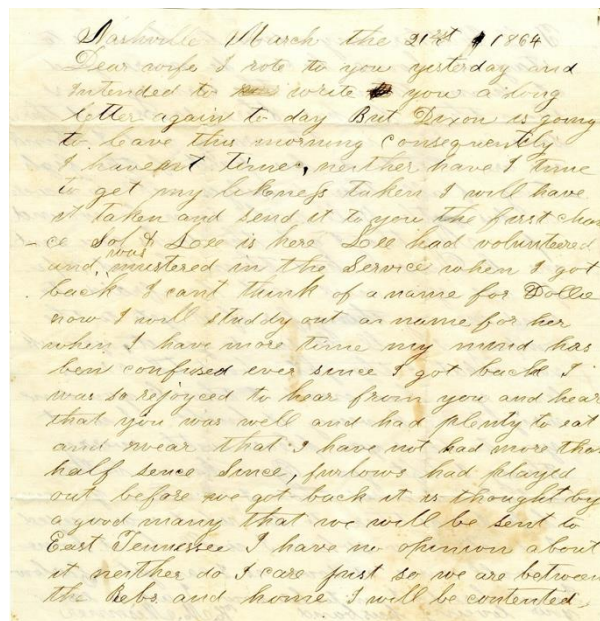 Nashville March the 21st 1864
Dear wife I rote to you yesterday and
intended to write to you a long
letter again to day But Dixon is going
to leave this morning consequently
I havent time, neither have I time
to get my likeness taken I will have
it taken and send it to you the first chan
-ce Sol & Lee is here Lee had volunteered
and was mustered in the Service when I got
back I cant think of a name for Dollie
now I will studdy out a name for her
when I have more time my mind has
ben confused ever since I got back I
was so rejoyced to hear from you and hear
that you was well and had plenty to eat
and wear that I have not had more than
half sence Since, furlows had played
out before we got back it is thought by
a good many that we will be sent to
East Tennessee I have no opinion about
it neither do I care just so we are between
the Rebs and home I will be contented,